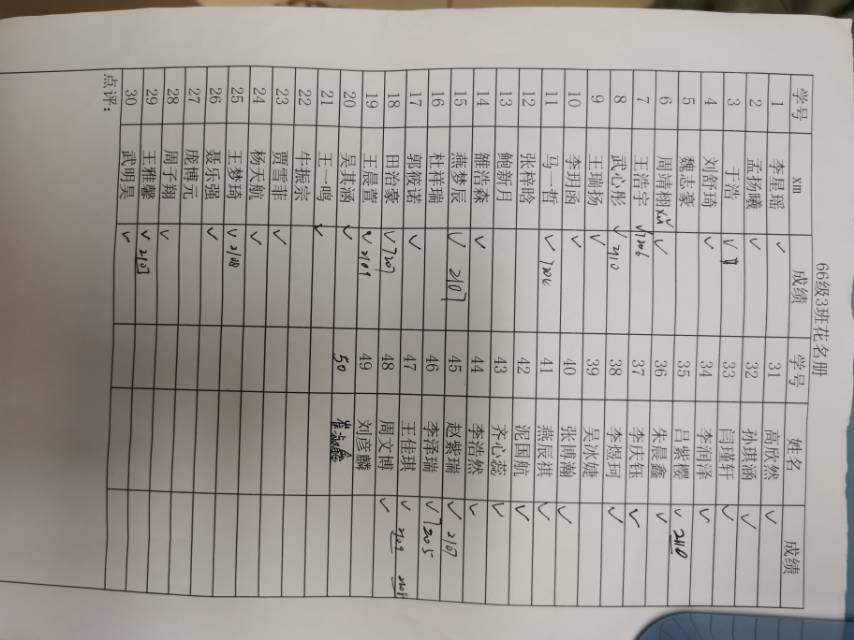 66级3班花名册
学号 xm 成绩 学号 姓名 成绩
1 李星瑶 ✓ 31 高欣然 ✓
2 孟扬曦 ✓ 32 孙琪涵 ✓
3 于浩 ✓ 33 闫瑾轩 ✓
4 刘舒琦 ✓ 34 李润泽 ✓
5 魏志豪 35 吕紫樱 ✓ 2110
6 周靖栩 ✓ 36 朱晨鑫 ✓
7 王浩宇 ✓ 1206 37 李庆钰 ✓
8 武心彤 ✓ 2110 38 李煜珂 ✓
9 王瑞扬 ✓ 39 吴冰婕
10 李玥函 ✓ 40 张博瀚 ✓
11 马一哲 ✓ 41 燕辰祺 ✓
12 张梓晗 42 泥国航 ✓
13 鲍新月 43 齐心蕊 ✓
14 雒浩森 ✓ 44 李浩然 ✓
15 燕梦辰 ✓ 2107 45 赵紫瑞 ✓ 2107
16 杜祥瑞 46 李泽瑞 ✓ 7205
17 郭筱诺 ✓ 47 王佳琪 ✓ 2109
18 田治豪 ✓ 7207 48 周文博 ✓
19 王晨萱 ✓ 2109 49 刘彦麟
20 吴其涵 ✓ 50
21 王一鸣 ✓
22 牛振宗
23 贾雪菲 ✓
24 杨天航 ✓
25 王梦琦 ✓ 2108
26 聂乐强 ✓
27 庞博元
28 周子翔 ✓
29 王雅馨 ✓ 2107
30 武明昊 ✓
点评：